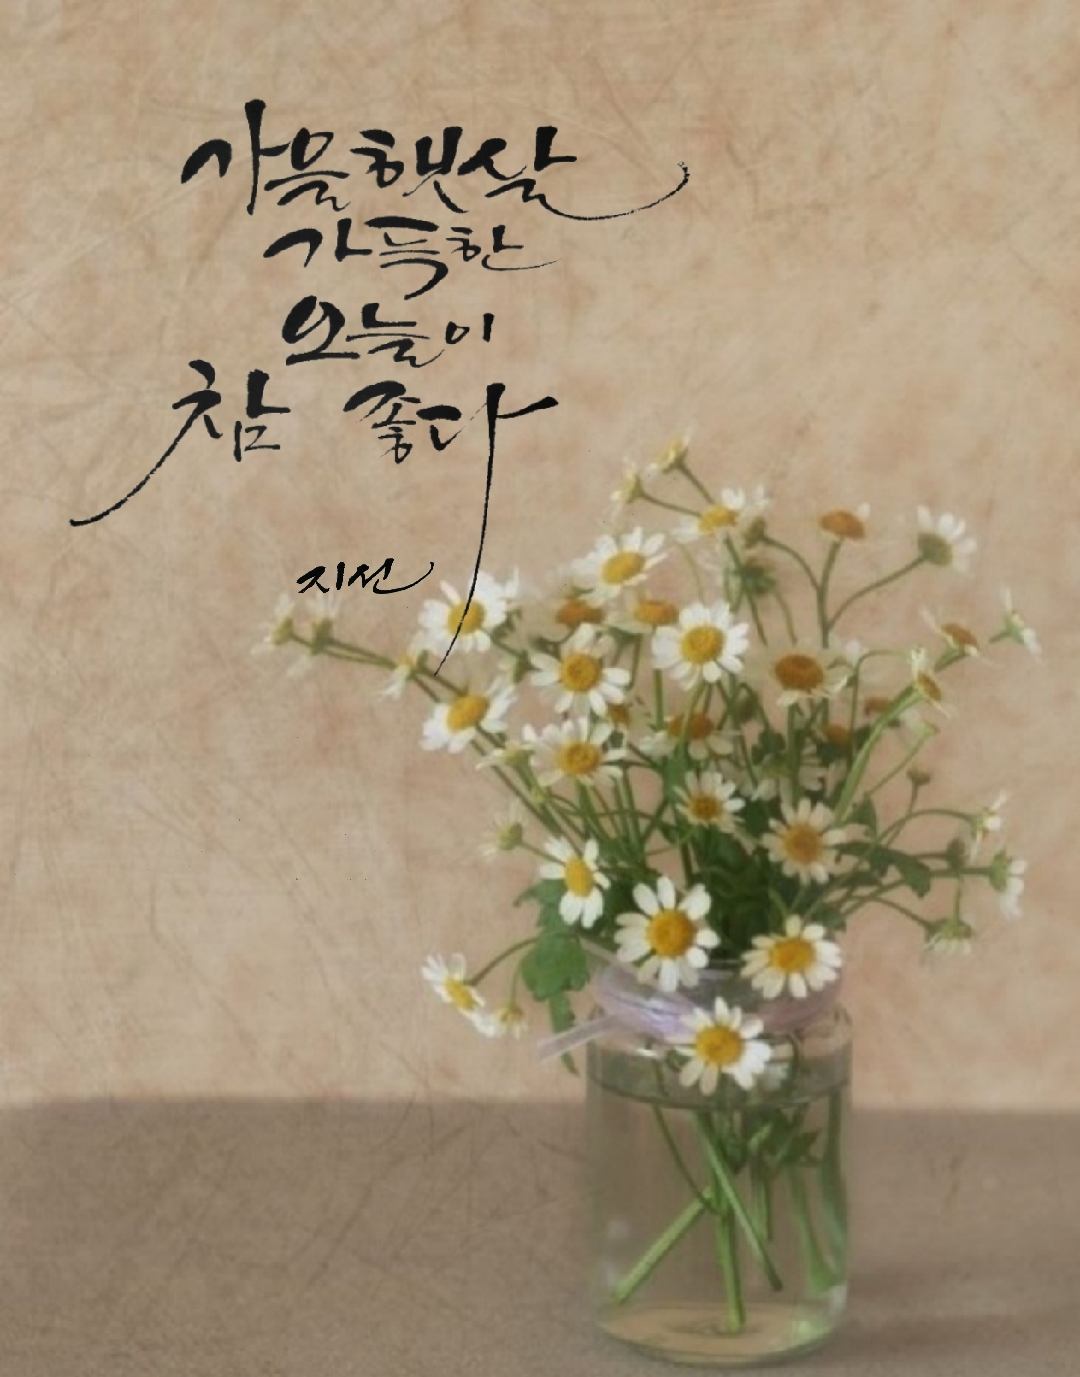 가을햇살
가득한
오늘이
참 좋다
지선